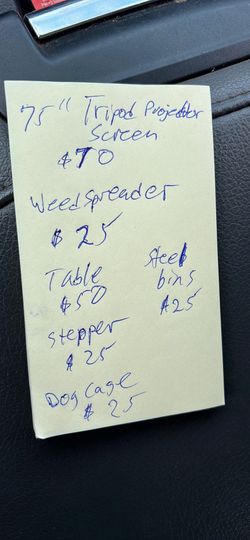 75" Tripod Projector
Screen
$70
Weed Spreader
$25
Table
$50
Steel
bins
$25
Stepper
$25
Dog cage
$25